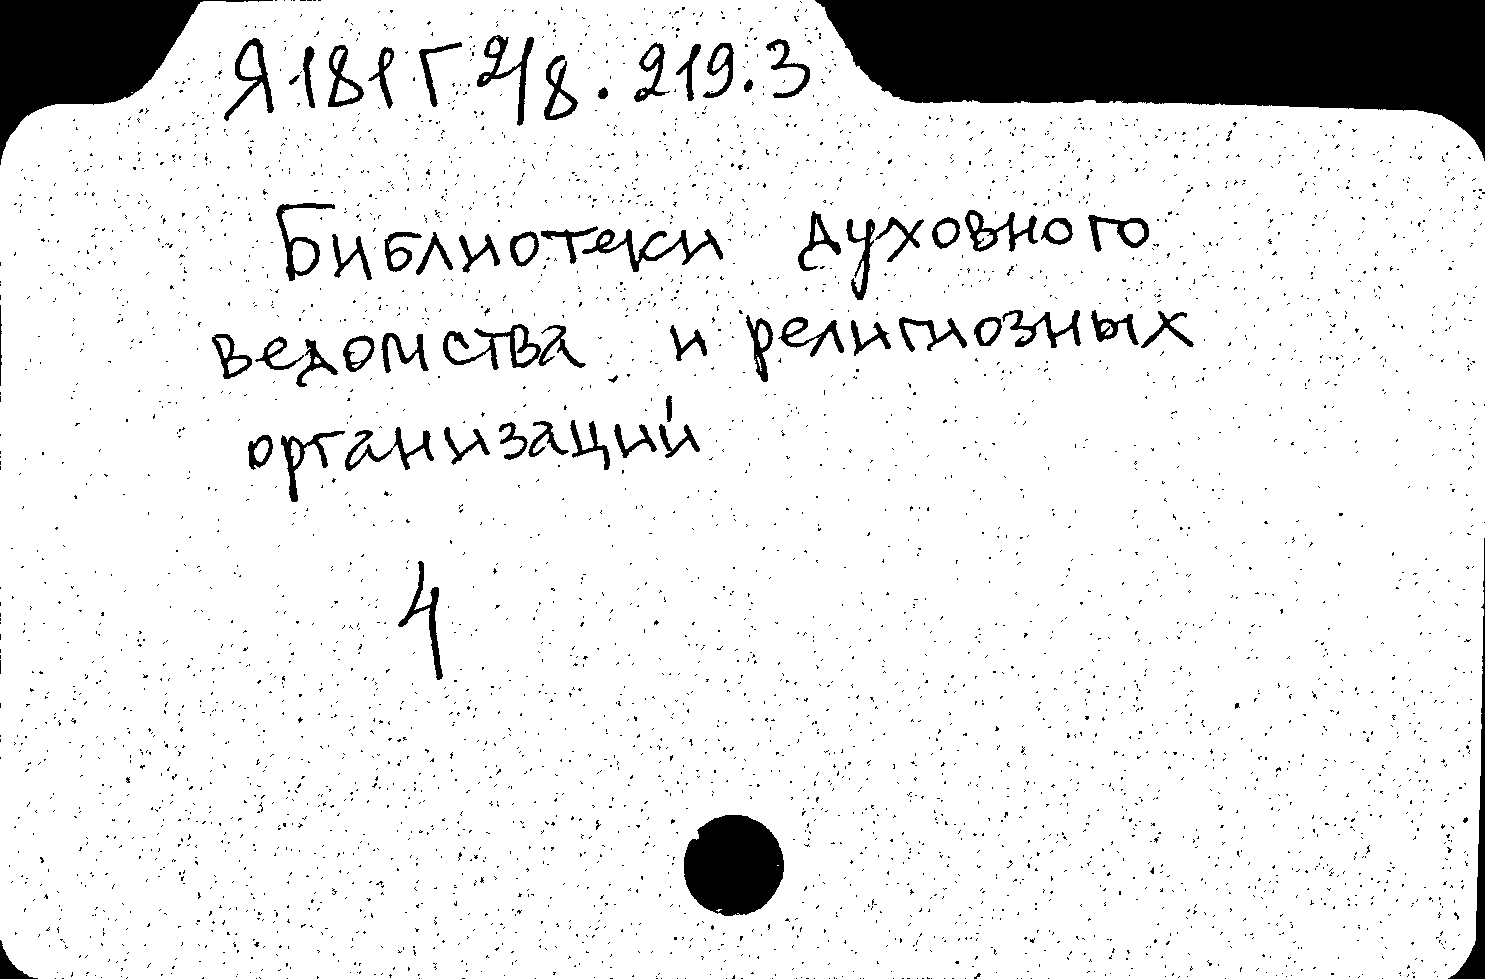 Я181Г2/8.219.3
Библиотеки духовного
ведомства и религиозных
организаций
4